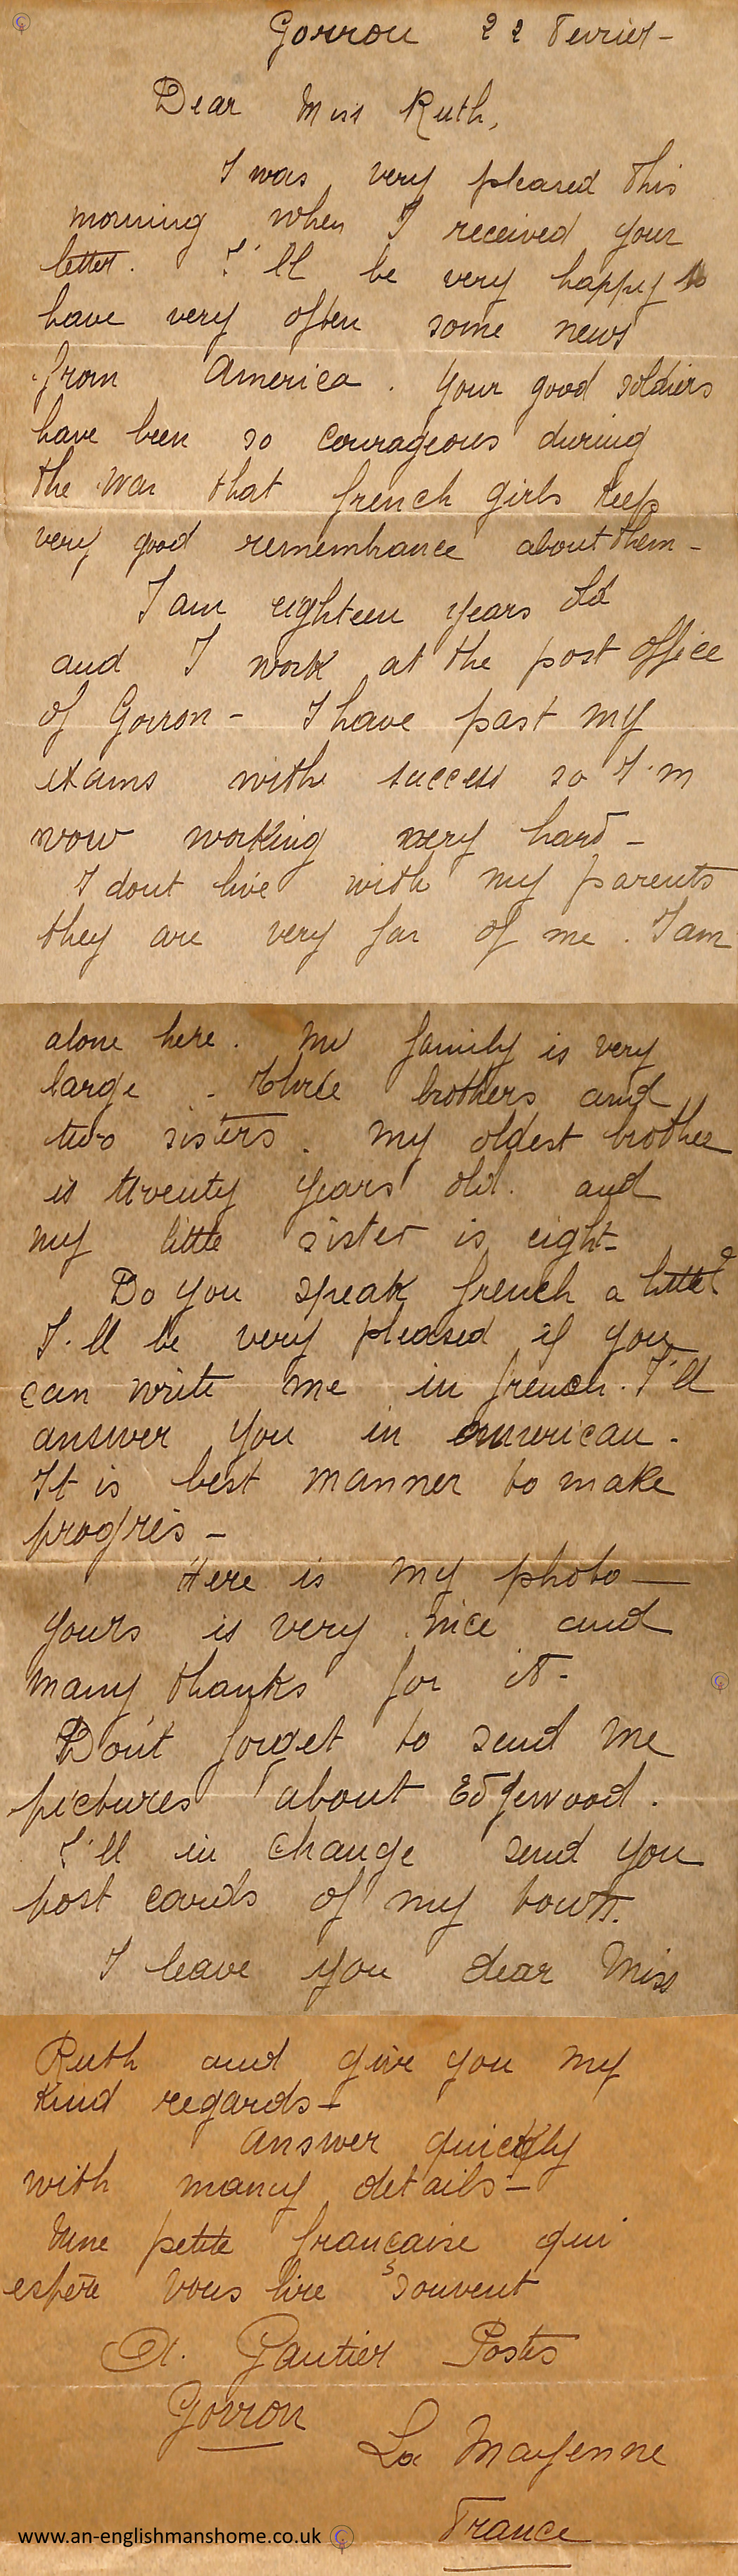 Gorron 22 Fevrier -
Dear Miss Ruth,
I was very pleased this
morning when I received your
letter. I'll be very happy to
have very often some news
from America. Your good soldiers
have been so courageous during
the war that french girls keep
very good remembrance about them -
I am eighteen years old
and I work at the post office
of Gorron - I have past my
exams with success so I'm
now working very hard -
I dont live with my parents
they are very far of me. I am
alone here. My family is very
large - three brothers and
two sisters. My oldest brother
is twenty years old. and
my little sister is eight -
Do you speak french a little?
I'll be very pleased if you
can write me in french. I'll
answer you in american -
It is best manner to make
progrès -
Here is my photo -
yours is very nice and
many thanks for it -
Don't forget to send me
pictures about Edgewood.
I'll in change send you
post cards of my town.
I leave you dear Miss
Ruth and give you my
kind regards -
Answer quickly
with many details -
Une petite française qui
espère vous lire souvent
A. Gautier Postes
Gorron
La Mayenne
France
www.an-englishmanshome.co.uk